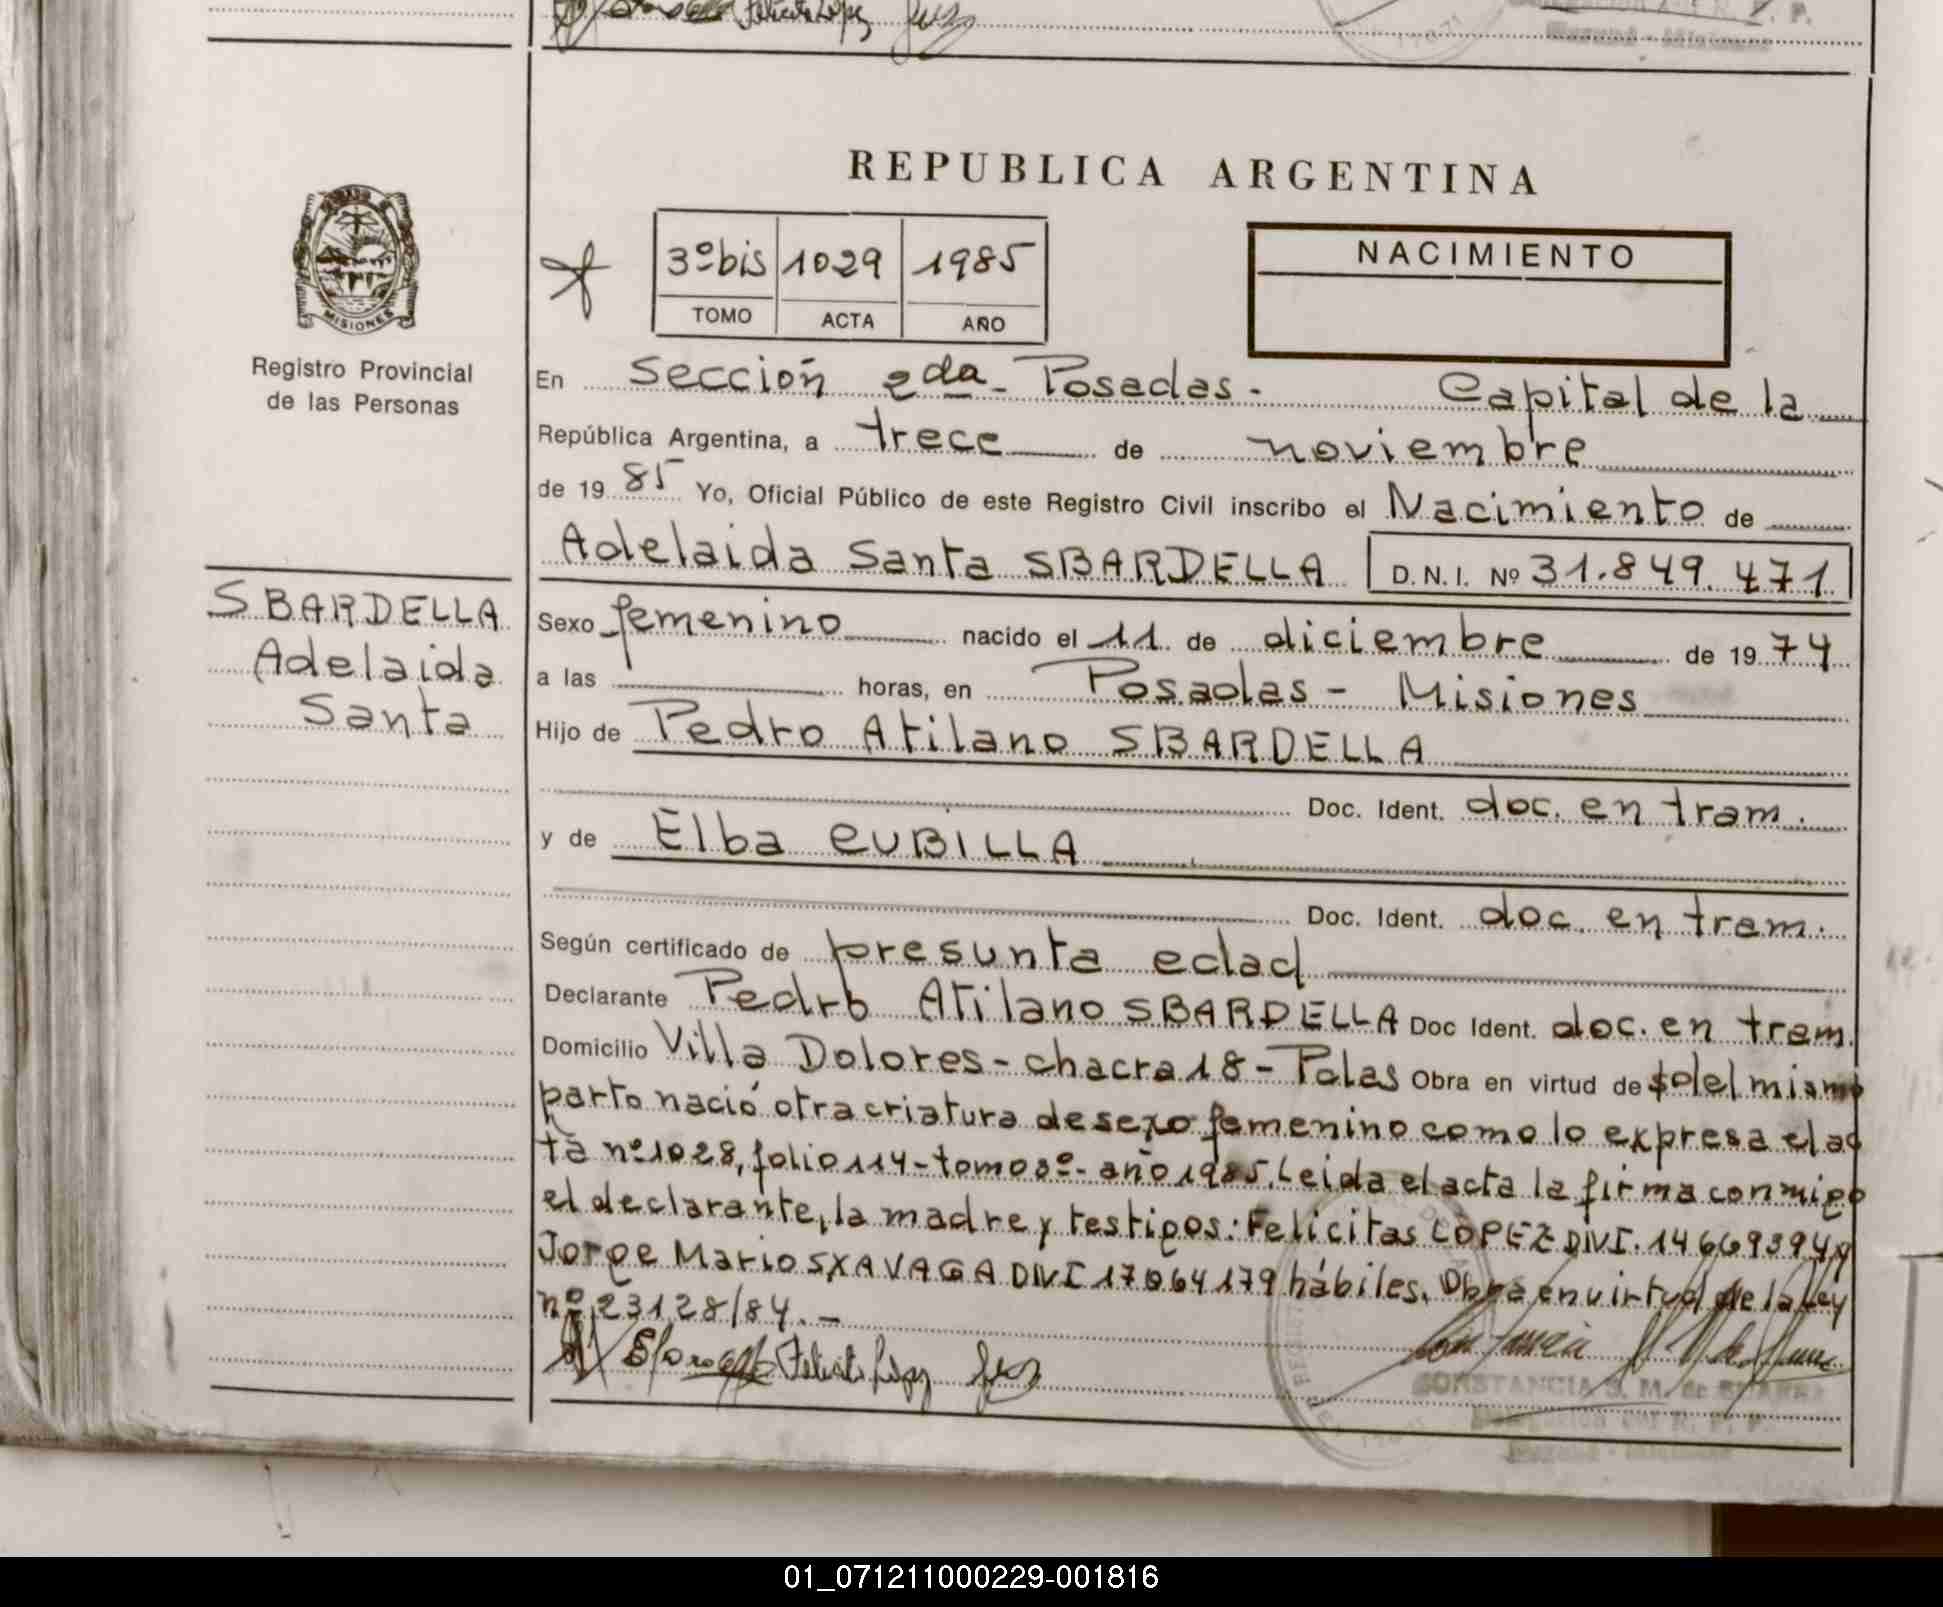 Felicita López
Misiones
REPUBLICA ARGENTINA
3º bis 1029 1985
TOMO ACTA AÑO
NACIMIENTO
MISIONES
Registro Provincial
de las Personas
En Sección 2da - Posadas - Capital de la
República Argentina, a trece de noviembre
de 1985 Yo, Oficial Público de este Registro Civil inscribo el Nacimiento de
Adelaida Santa SBARDELLA D.N.I. Nº 31.849.471
SBARDELLA
Adelaida
Santa
Sexo femenino nacido el 11 de diciembre de 1974
a las horas, en Posadas - Misiones
Hijo de Pedro Atilano SBARDELLA
Doc. Ident. doc. en tram.
y de Elba CUBILLA
Doc. Ident. doc. en tram.
Según certificado de presunta edad
Declarante Pedro Atilano SBARDELLA Doc Ident. doc. en tram.
Domicilio Villa Dolores - chacra 18 - Pdas Obra en virtud de del mismo
parto nació otra criatura de sexo femenino como lo expresa el ac
ta nº 1028, folio 114 - tomo 3º - año 1985. Leida el acta la firma conmigo
el declarante, la madre y testigos: Felicitas LOPEZ DNI. 14669394 y
Jorge Mario SXAVAGA DNI 17064179 hábiles. Obra en virtud de la Ley
nº 23128/84. -
Felicita López
CONSTANCIA S. M. de SUAREZ
01_071211000229-001816